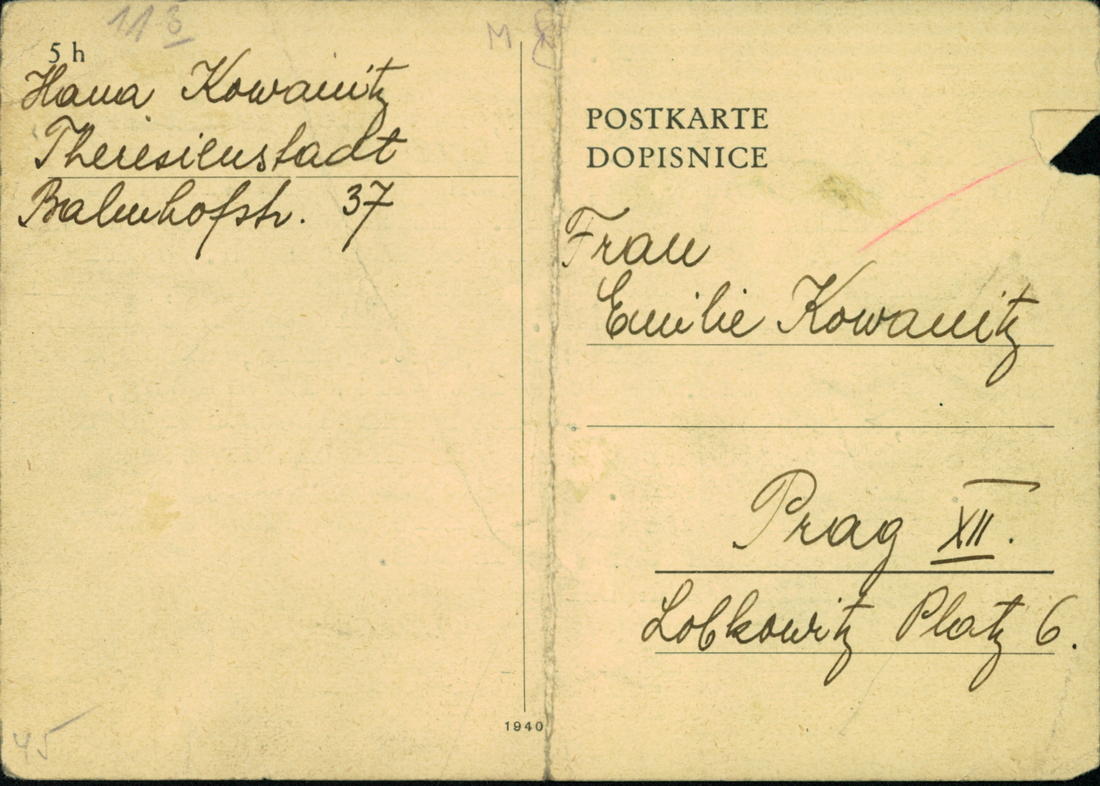 118
5 h
Hana Kowanitz
Theresienstadt
Bahnhofstr. 37
M
POSTKARTE
DOPISNICE
Frau
Emilie Kowanitz
Prag XII.
Lobkowitz Platz 6.
1940
45